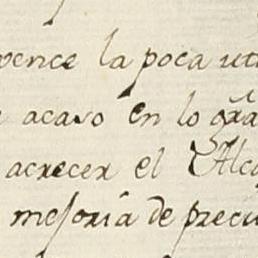 vence la poca uti
acaso en lo gra
acrecer el Alca
mesoria de precu